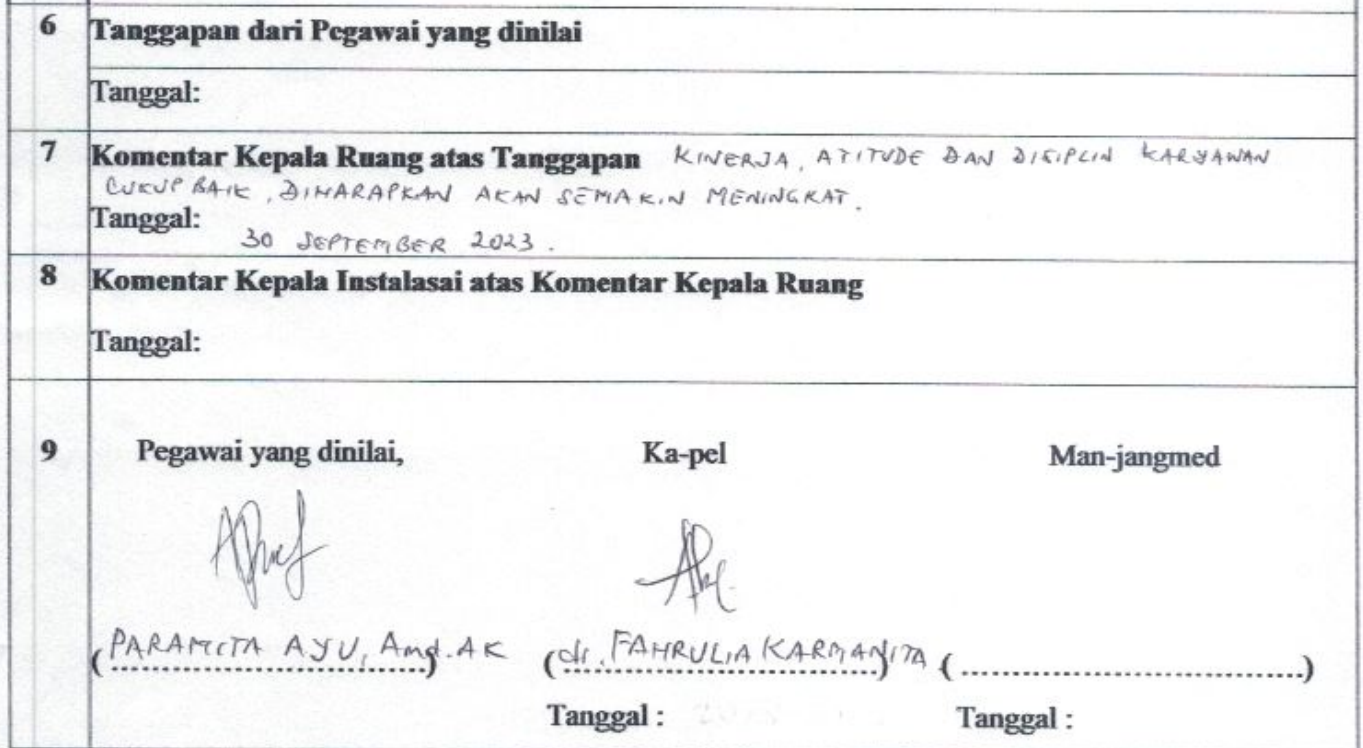 6 Tanggapan dari Pegawai yang dinilai
Tanggal:
7 Komentar Kepala Ruang atas Tanggapan KINERJA, ATITUDE DAN DISIPLIN KARYAWAN
CUKUP BAIK, DIHARAPKAN AKAN SEMAKIN MENINGKAT.
Tanggal:
30 SEPTEMBER 2023.
8 Komentar Kepala Instalasai atas Komentar Kepala Ruang
Tanggal:
9 Pegawai yang dinilai, Ka-pel Man-jangmed
(PARAMITA AYU, Amd.AK) (dr. FAHRULIA KARMANITA) (................................)
Tanggal : Tanggal :